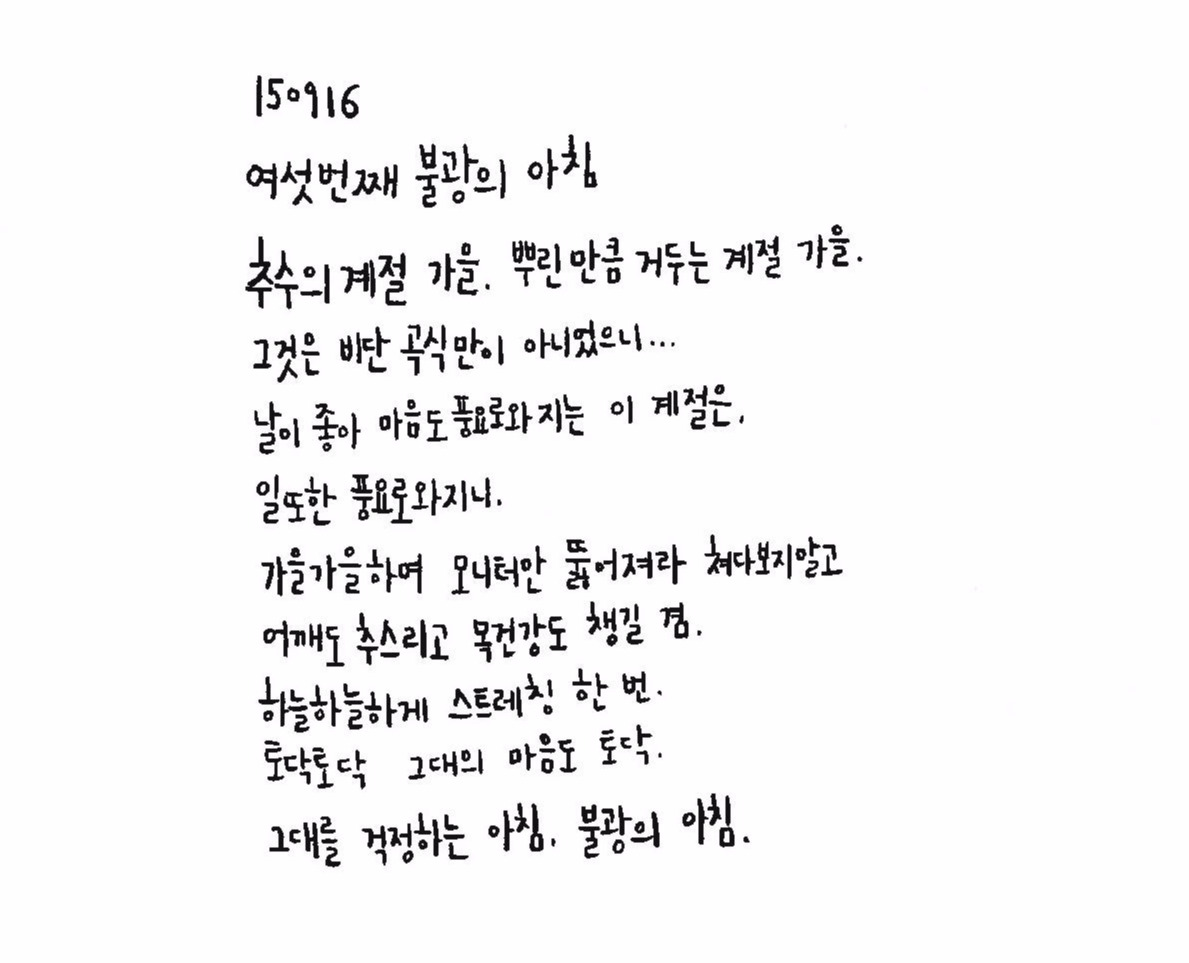 150916
여섯번째 불광의 아침
추수의 계절 가을. 뿌린만큼 거두는 계절 가을.
그것은 비단 곡식만이 아니었으니...
날이 좋아 마음도 풍요로와지는 이 계절은,
일또한 풍요로와지니.
가을가을하며 모니터만 뚫어져라 쳐다보지말고
어깨도 추스리고 목건강도 챙길 겸.
하늘하늘하게 스트레칭 한 번.
토닥토닥 그대의 마음도 토닥.
그대를 걱정하는 아침. 불광의 아침.